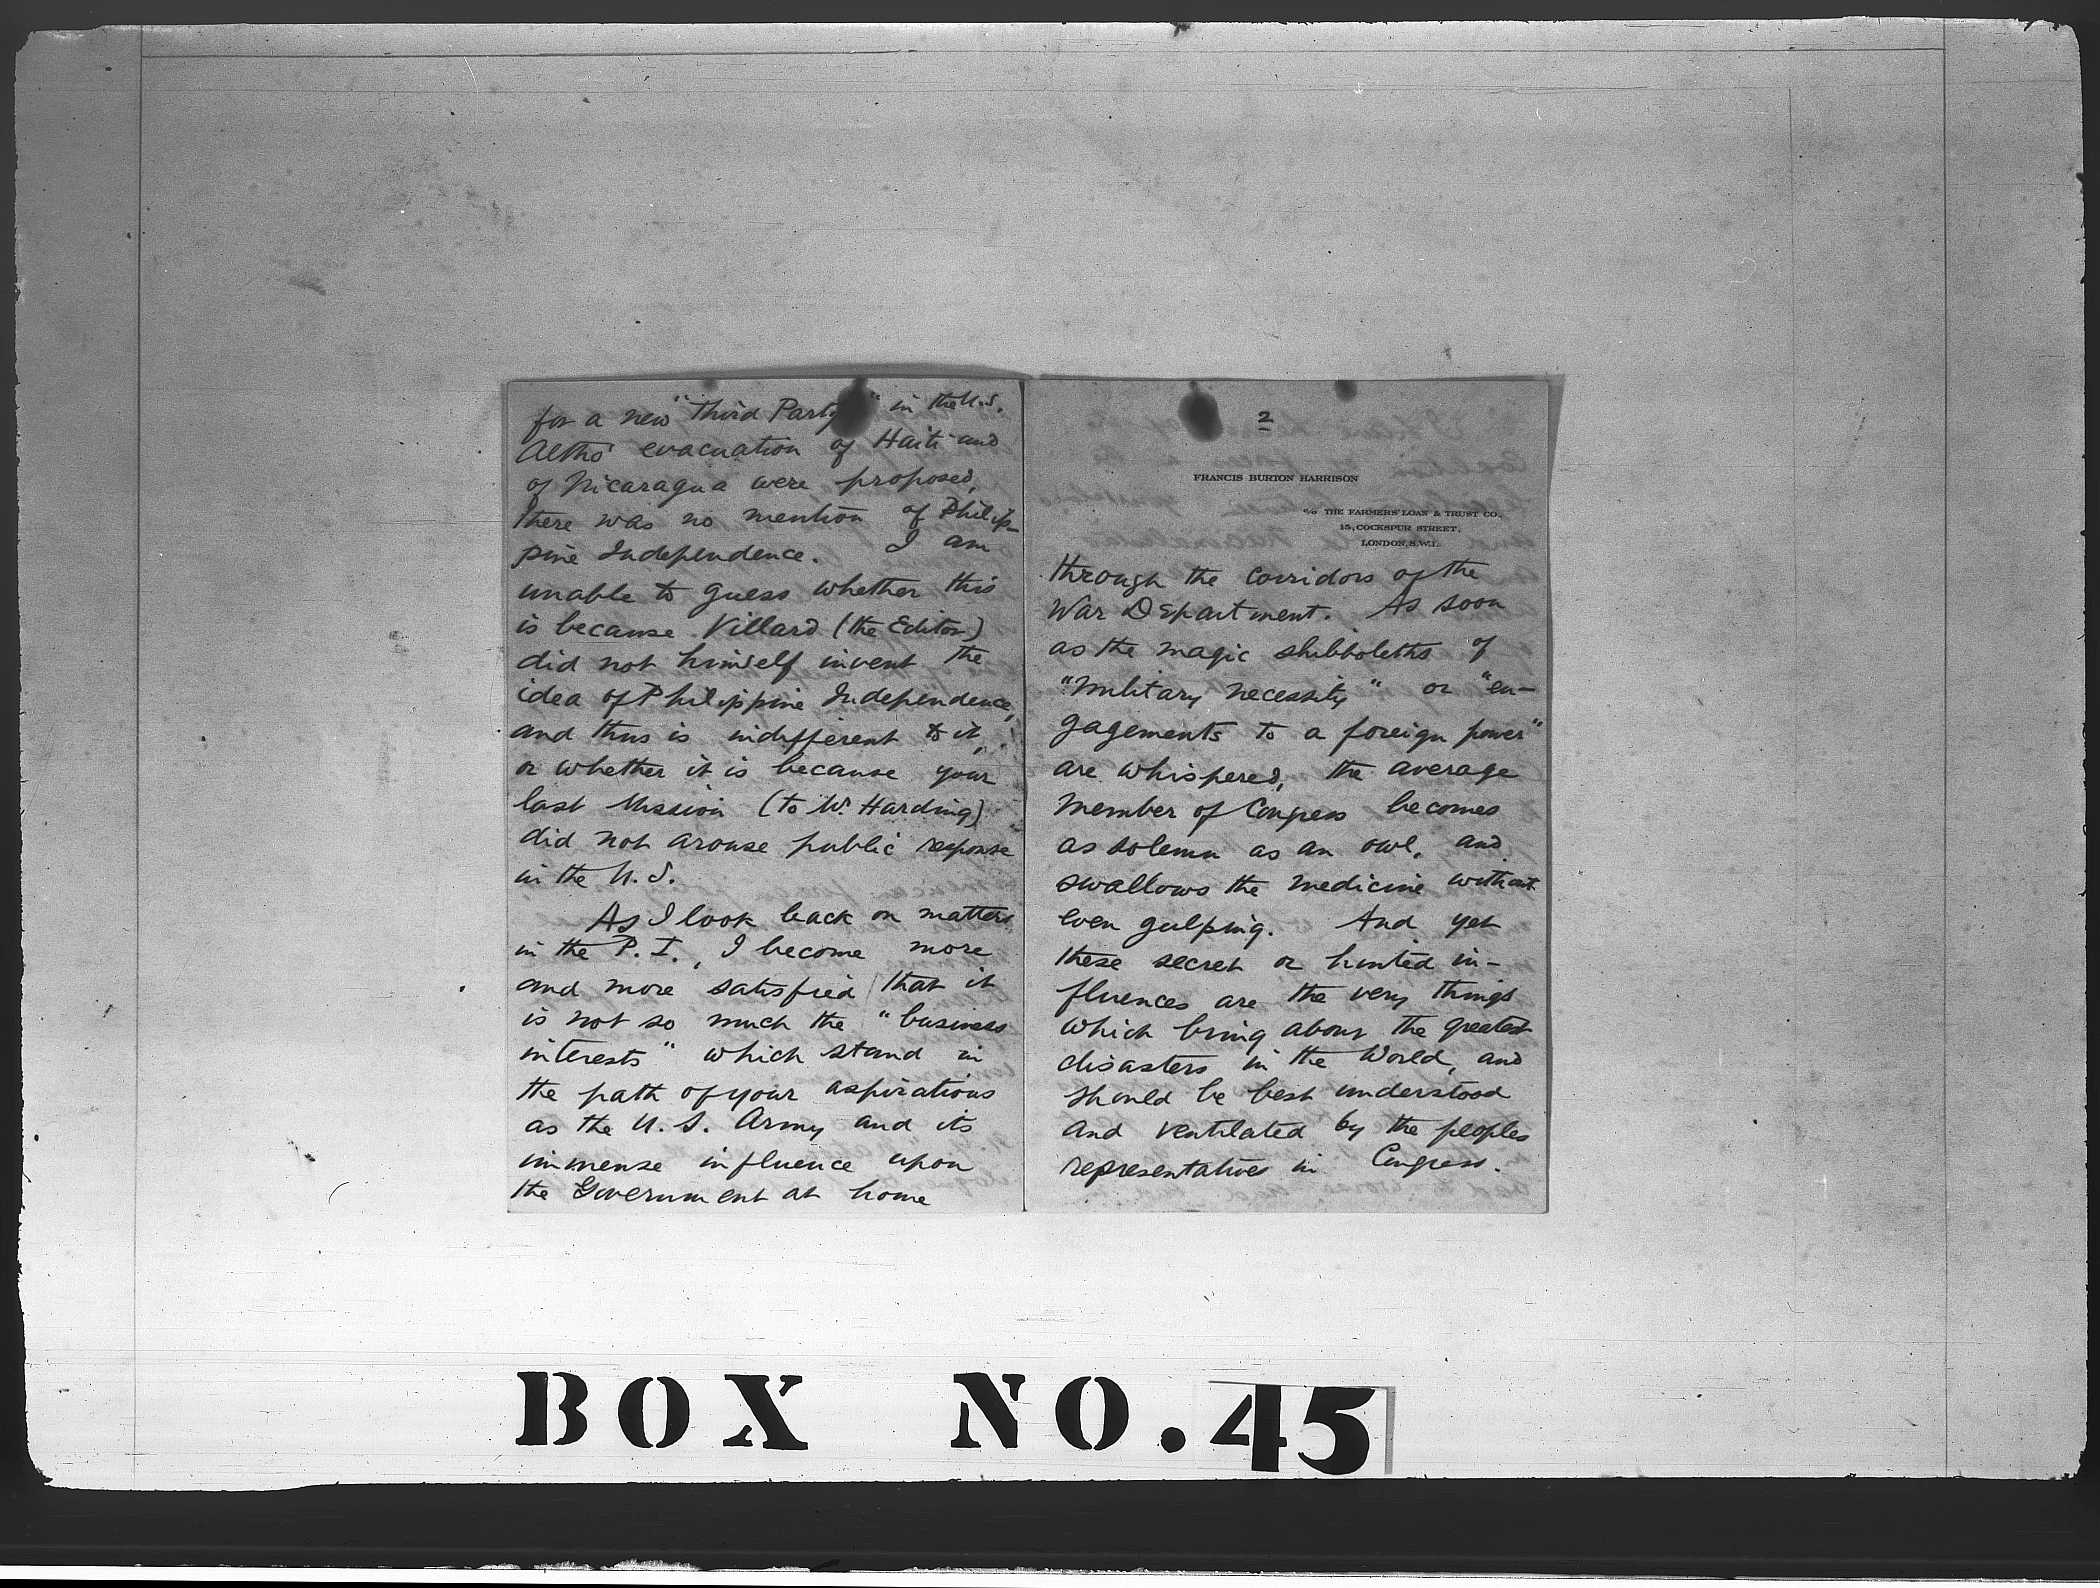 for a new "Third Party" in the U.S.
Altho' evacuation of Haiti and
of Nicaragua were proposed,
there was no mention of Philip-
pine Independence. I am
unable to guess whether this
is because Villard (the Editor)
did not himself invent the
idea of Philippine Independence,
and thus is indifferent to it,
or whether it is because your
last Mission (to W. Harding)
did not arouse public response
in the U.S.
As I look back on matters
in the P.I., I become more
and more satisfied that it
is not so much the "business
interests" which stand in
the path of your aspirations
as the U.S. Army and its
immense influence upon
the Government at home
2
FRANCIS BURTON HARRISON
c/o THE FARMERS' LOAN & TRUST CO.,
15, COCKSPUR STREET,
LONDON, S.W.1.
through the corridors of the
War Department. As soon
as the magic shibboleths of
"military necessity" or "en-
gagements to a foreign power"
are whispered, the average
Member of Congress becomes
as solemn as an owl, and
swallows the medicine without
even gulping. And yet
these secret or hinted in-
fluences are the very things
which bring about the greatest
disasters in the World, and
should be best understood
and ventilated by the peoples
representatives in Congress.
BOX NO. 45